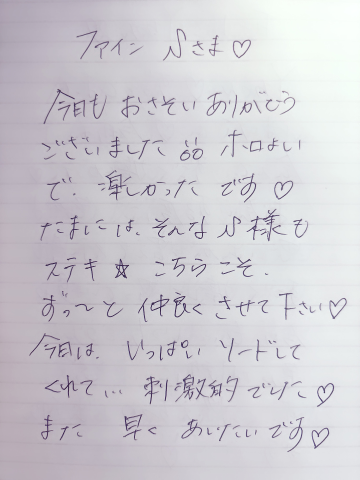 ファイン Nさま♡
今日も おさそい ありがとう
ございました ホロよい
で、楽しかった です♡
たまには、そんな N様も
ステキ★ こちらこそ、
ずっ〜と 仲良く させて下さい♡
今日は、いっぱい リードして
くれて... 刺激的 でした♡
また 早く あいたい です♡